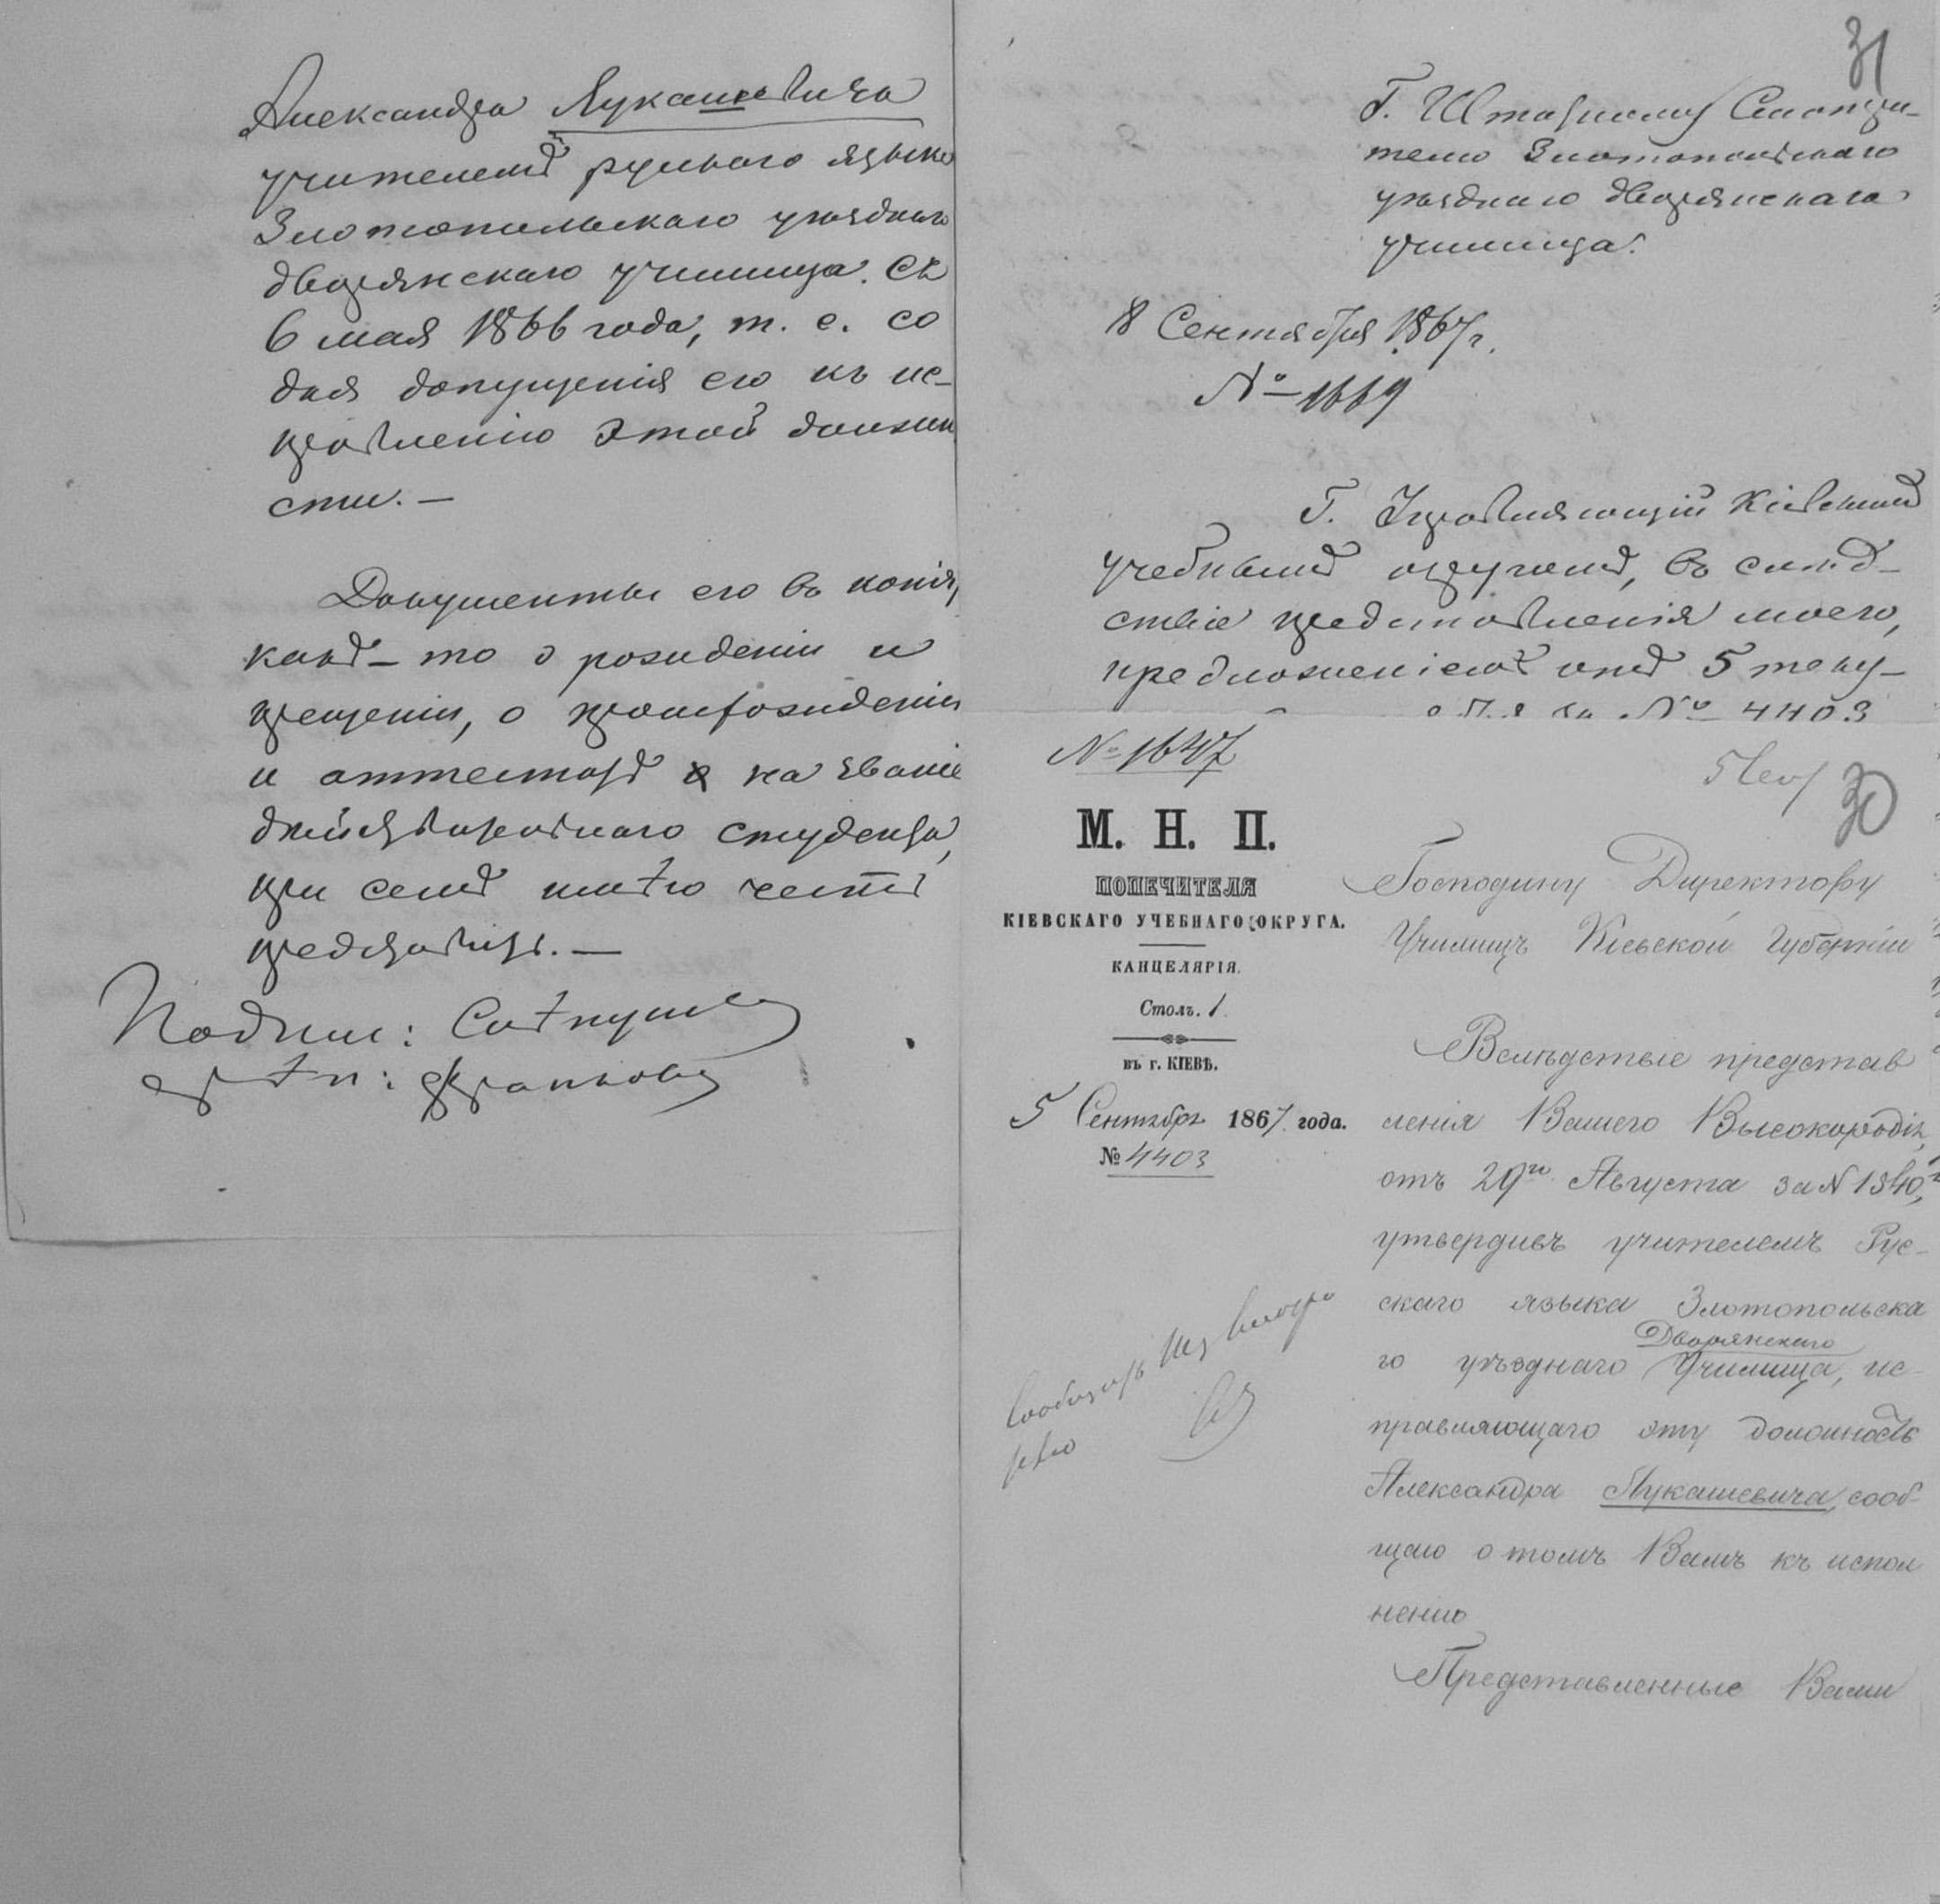 Александра Лукашевича
учителемъ рускаго языка
Златопольскаго уѣзднаго
дворянскаго училища. съ
6 мая 1866 года, т. е. со
дня допущенія его къ ис-
правленію этой должно
сти. —
Документы его въ копіи,
какъ-то о рожденіи и
крещеніи, о происхожденіи
и аттестатъ на званіе
дѣйствительнаго студента,
при семъ имѣю честь
представить. —
Подпис:
31
Г. Штатному Смотри-
телю Златопольскаго
уѣзднаго дворянскаго
училища.
8 Сентября 1867 г.
№ 1669
Г. Управляющій Кіевскимъ
учебнымъ округомъ, въ слѣд-
ствіе представленія моего,
предложеніемъ отъ 5 теку-
за № 4403
№ 1647
5 Сен
30
М. Н. П.
ПОПЕЧИТЕЛЯ
КІЕВСКАГО УЧЕБНАГО ОКРУГА.
КАНЦЕЛЯРІЯ.
Столъ. 1.
въ г. КІЕВѢ.
5 Сентября 1867 года.
№ 4403
Господину Директору
Училищъ Кіевской Губерніи
Вслѣдствіе представ
ленія Вашего Высокородія,
отъ 29го Августа за №
утвердивъ учителемъ Рус-
скаго языка Златопольска
Дворянскаго
го уѣзднаго Училища, ис-
правляющаго эту должность
Александра Лукашевича, сооб-
щаю о томъ Вамъ къ испол
ненію
Представленные Вами